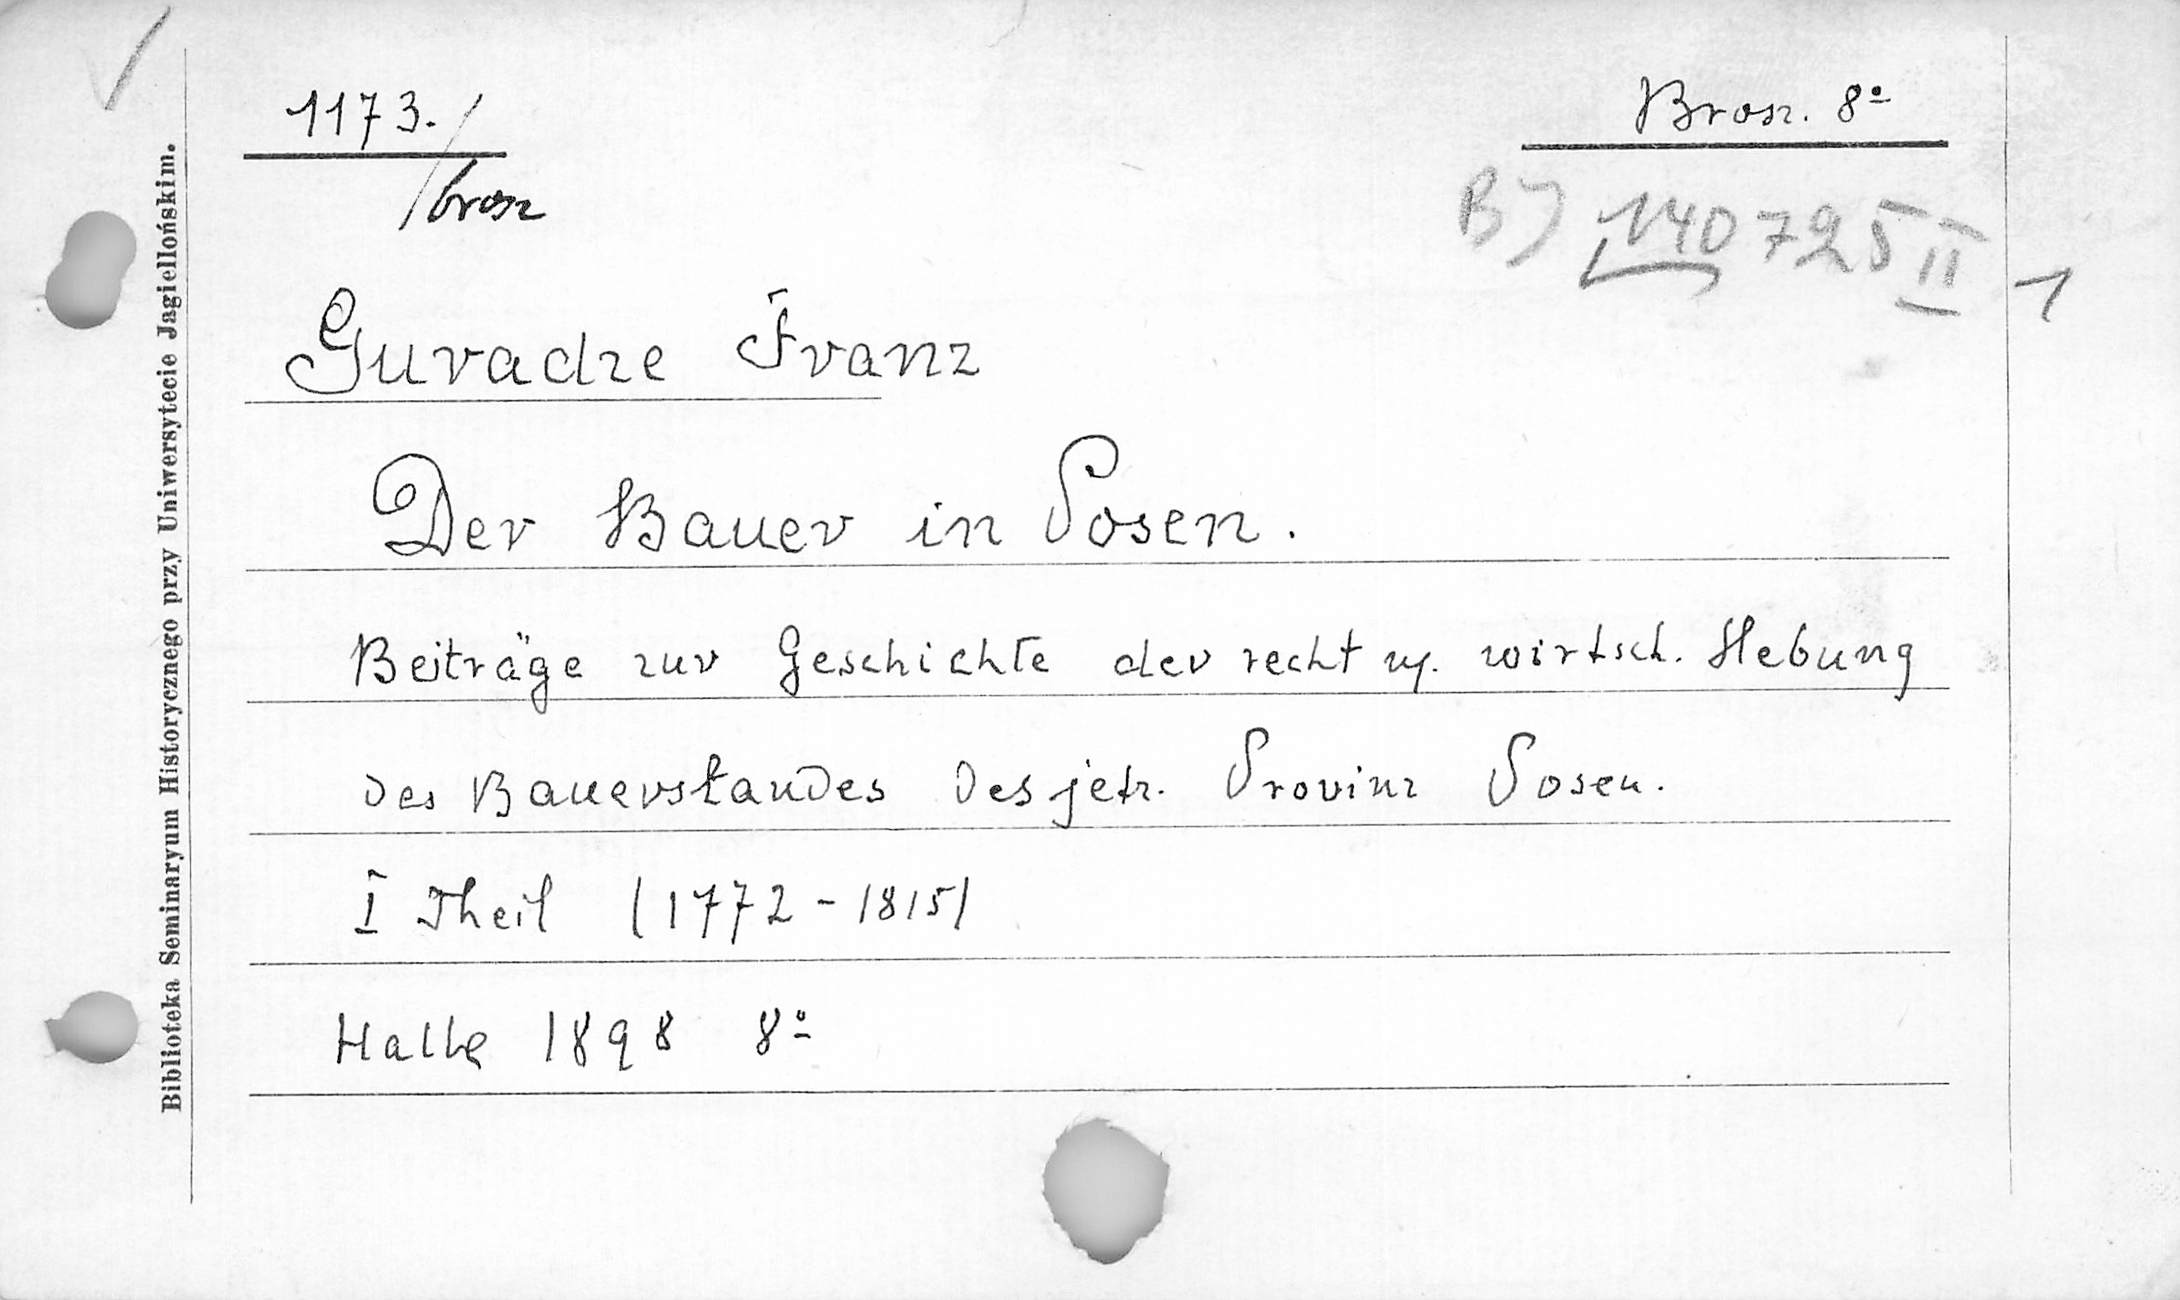 1173./brosz
Brosz. 8º
BJ 140725 II 1
Guradze Franz
Der Bauer in Posen.
Beiträge zur Geschichte der recht u. wirtsch. Hebung
des Bauerstandes des jetz. Provinz Posen.
I Theil (1772-1815)
Halle 1898 8º
Biblioteka Seminaryum Historycznego przy Uniwersytecie Jagiellońskim.